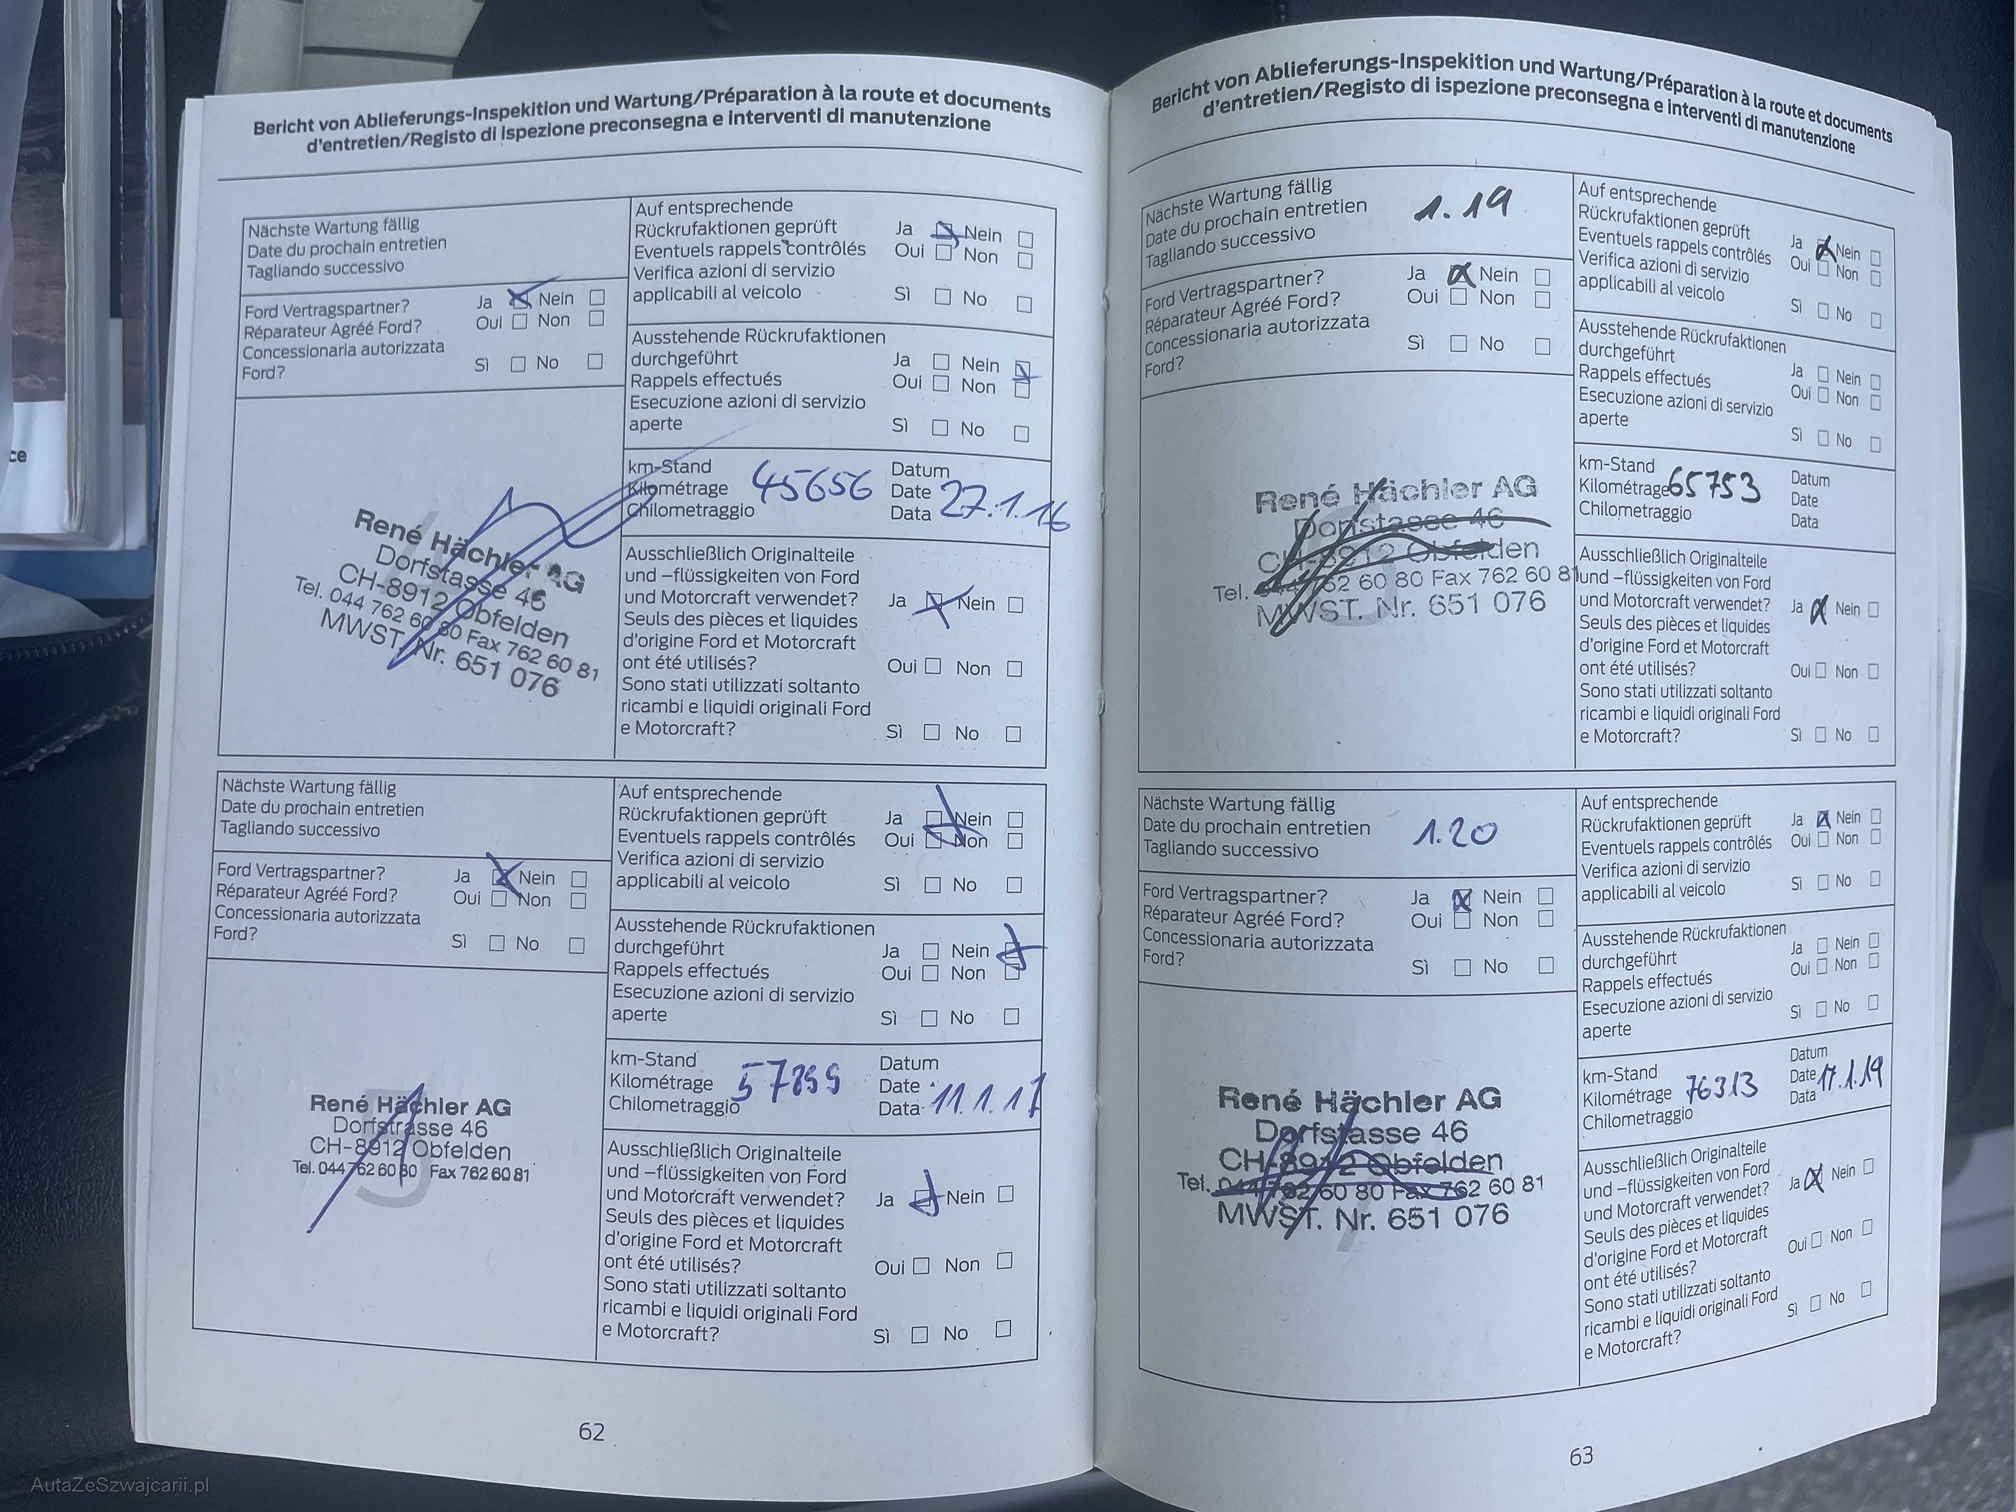 ce
Bericht von Ablieferungs-Inspekition und Wartung/Préparation à la route et documents
d'entretien/Registo di ispezione preconsegna e interventi di manutenzione
Nächste Wartung fällig
Date du prochain entretien
Tagliando successivo
Ford Vertragspartner?
Réparateur Agréé Ford?
Concessionaria autorizzata
Ford?
Ja Nein
Oui Non
Sì No
René Hächler AG
Dorfstasse 46
CH-8912 Obfelden
Tel. 044 762 60 80 Fax 762 60 81
MWST. Nr. 651 076
Auf entsprechende
Rückrufaktionen geprüft
Eventuels rappels contrôlés
Verifica azioni di servizio
applicabili al veicolo
Ja Nein
Oui Non
Sì No
Ausstehende Rückrufaktionen
durchgeführt
Rappels effectués
Esecuzione azioni di servizio
aperte
Ja Nein
Oui Non
Sì No
km-Stand
Kilométrage 45656
Chilometraggio
Datum
Date 27.1.16
Data
Ausschließlich Originalteile
und –flüssigkeiten von Ford
und Motorcraft verwendet? Ja Nein
Seuls des pièces et liquides
d'origine Ford et Motorcraft
ont été utilisés? Oui Non
Sono stati utilizzati soltanto
ricambi e liquidi originali Ford
e Motorcraft? Sì No
Nächste Wartung fällig
Date du prochain entretien
Tagliando successivo
Ford Vertragspartner?
Réparateur Agréé Ford?
Concessionaria autorizzata
Ford?
Ja Nein
Oui Non
Sì No
René Hächler AG
Dorfstrasse 46
CH-8912 Obfelden
Tel. 044 762 60 80 Fax 762 60 81
Auf entsprechende
Rückrufaktionen geprüft
Eventuels rappels contrôlés
Verifica azioni di servizio
applicabili al veicolo
Ja Nein
Oui Non
Sì No
Ausstehende Rückrufaktionen
durchgeführt
Rappels effectués
Esecuzione azioni di servizio
aperte
Ja Nein
Oui Non
Sì No
km-Stand
Kilométrage
Chilometraggio
Datum
Date
Data 11.1.17
Ausschließlich Originalteile
und –flüssigkeiten von Ford
und Motorcraft verwendet? Ja Nein
Seuls des pièces et liquides
d'origine Ford et Motorcraft
ont été utilisés? Oui Non
Sono stati utilizzati soltanto
ricambi e liquidi originali Ford
e Motorcraft? Sì No
62
Bericht von Ablieferungs-Inspekition und Wartung/Préparation à la route et documents
d'entretien/Registo di ispezione preconsegna e interventi di manutenzione
Nächste Wartung fällig
Date du prochain entretien 1.19
Tagliando successivo
Ford Vertragspartner?
Réparateur Agréé Ford?
Concessionaria autorizzata
Ford?
Ja Nein
Oui Non
Sì No
René Hächler AG
Dorfstasse 46
CH-8912 Obfelden
Tel. 044 762 60 80 Fax 762 60 81
MWST. Nr. 651 076
Auf entsprechende
Rückrufaktionen geprüft
Eventuels rappels contrôlés
Verifica azioni di servizio
applicabili al veicolo
Ja Nein
Oui Non
Sì No
Ausstehende Rückrufaktionen
durchgeführt
Rappels effectués
Esecuzione azioni di servizio
aperte
Ja Nein
Oui Non
Sì No
km-Stand
Kilométrage 65753
Chilometraggio
Datum
Date
Data
Ausschließlich Originalteile
und –flüssigkeiten von Ford
und Motorcraft verwendet? Ja Nein
Seuls des pièces et liquides
d'origine Ford et Motorcraft
ont été utilisés? Oui Non
Sono stati utilizzati soltanto
ricambi e liquidi originali Ford
e Motorcraft? Sì No
Nächste Wartung fällig
Date du prochain entretien 1.20
Tagliando successivo
Ford Vertragspartner?
Réparateur Agréé Ford?
Concessionaria autorizzata
Ford?
Ja Nein
Oui Non
Sì No
René Hächler AG
Dorfstasse 46
CH-8912 Obfelden
Tel. 044 762 60 80 Fax 762 60 81
MWST. Nr. 651 076
Auf entsprechende
Rückrufaktionen geprüft
Eventuels rappels contrôlés
Verifica azioni di servizio
applicabili al veicolo
Ja Nein
Oui Non
Sì No
Ausstehende Rückrufaktionen
durchgeführt
Rappels effectués
Esecuzione azioni di servizio
aperte
Ja Nein
Oui Non
Sì No
km-Stand
Kilométrage 76313
Chilometraggio
Datum
Date 17.1.19
Data
Ausschließlich Originalteile
und –flüssigkeiten von Ford
und Motorcraft verwendet? Ja Nein
Seuls des pièces et liquides
d'origine Ford et Motorcraft
ont été utilisés? Oui Non
Sono stati utilizzati soltanto
ricambi e liquidi originali Ford
e Motorcraft? Sì No
63
AutaZeSzwajcarii.pl